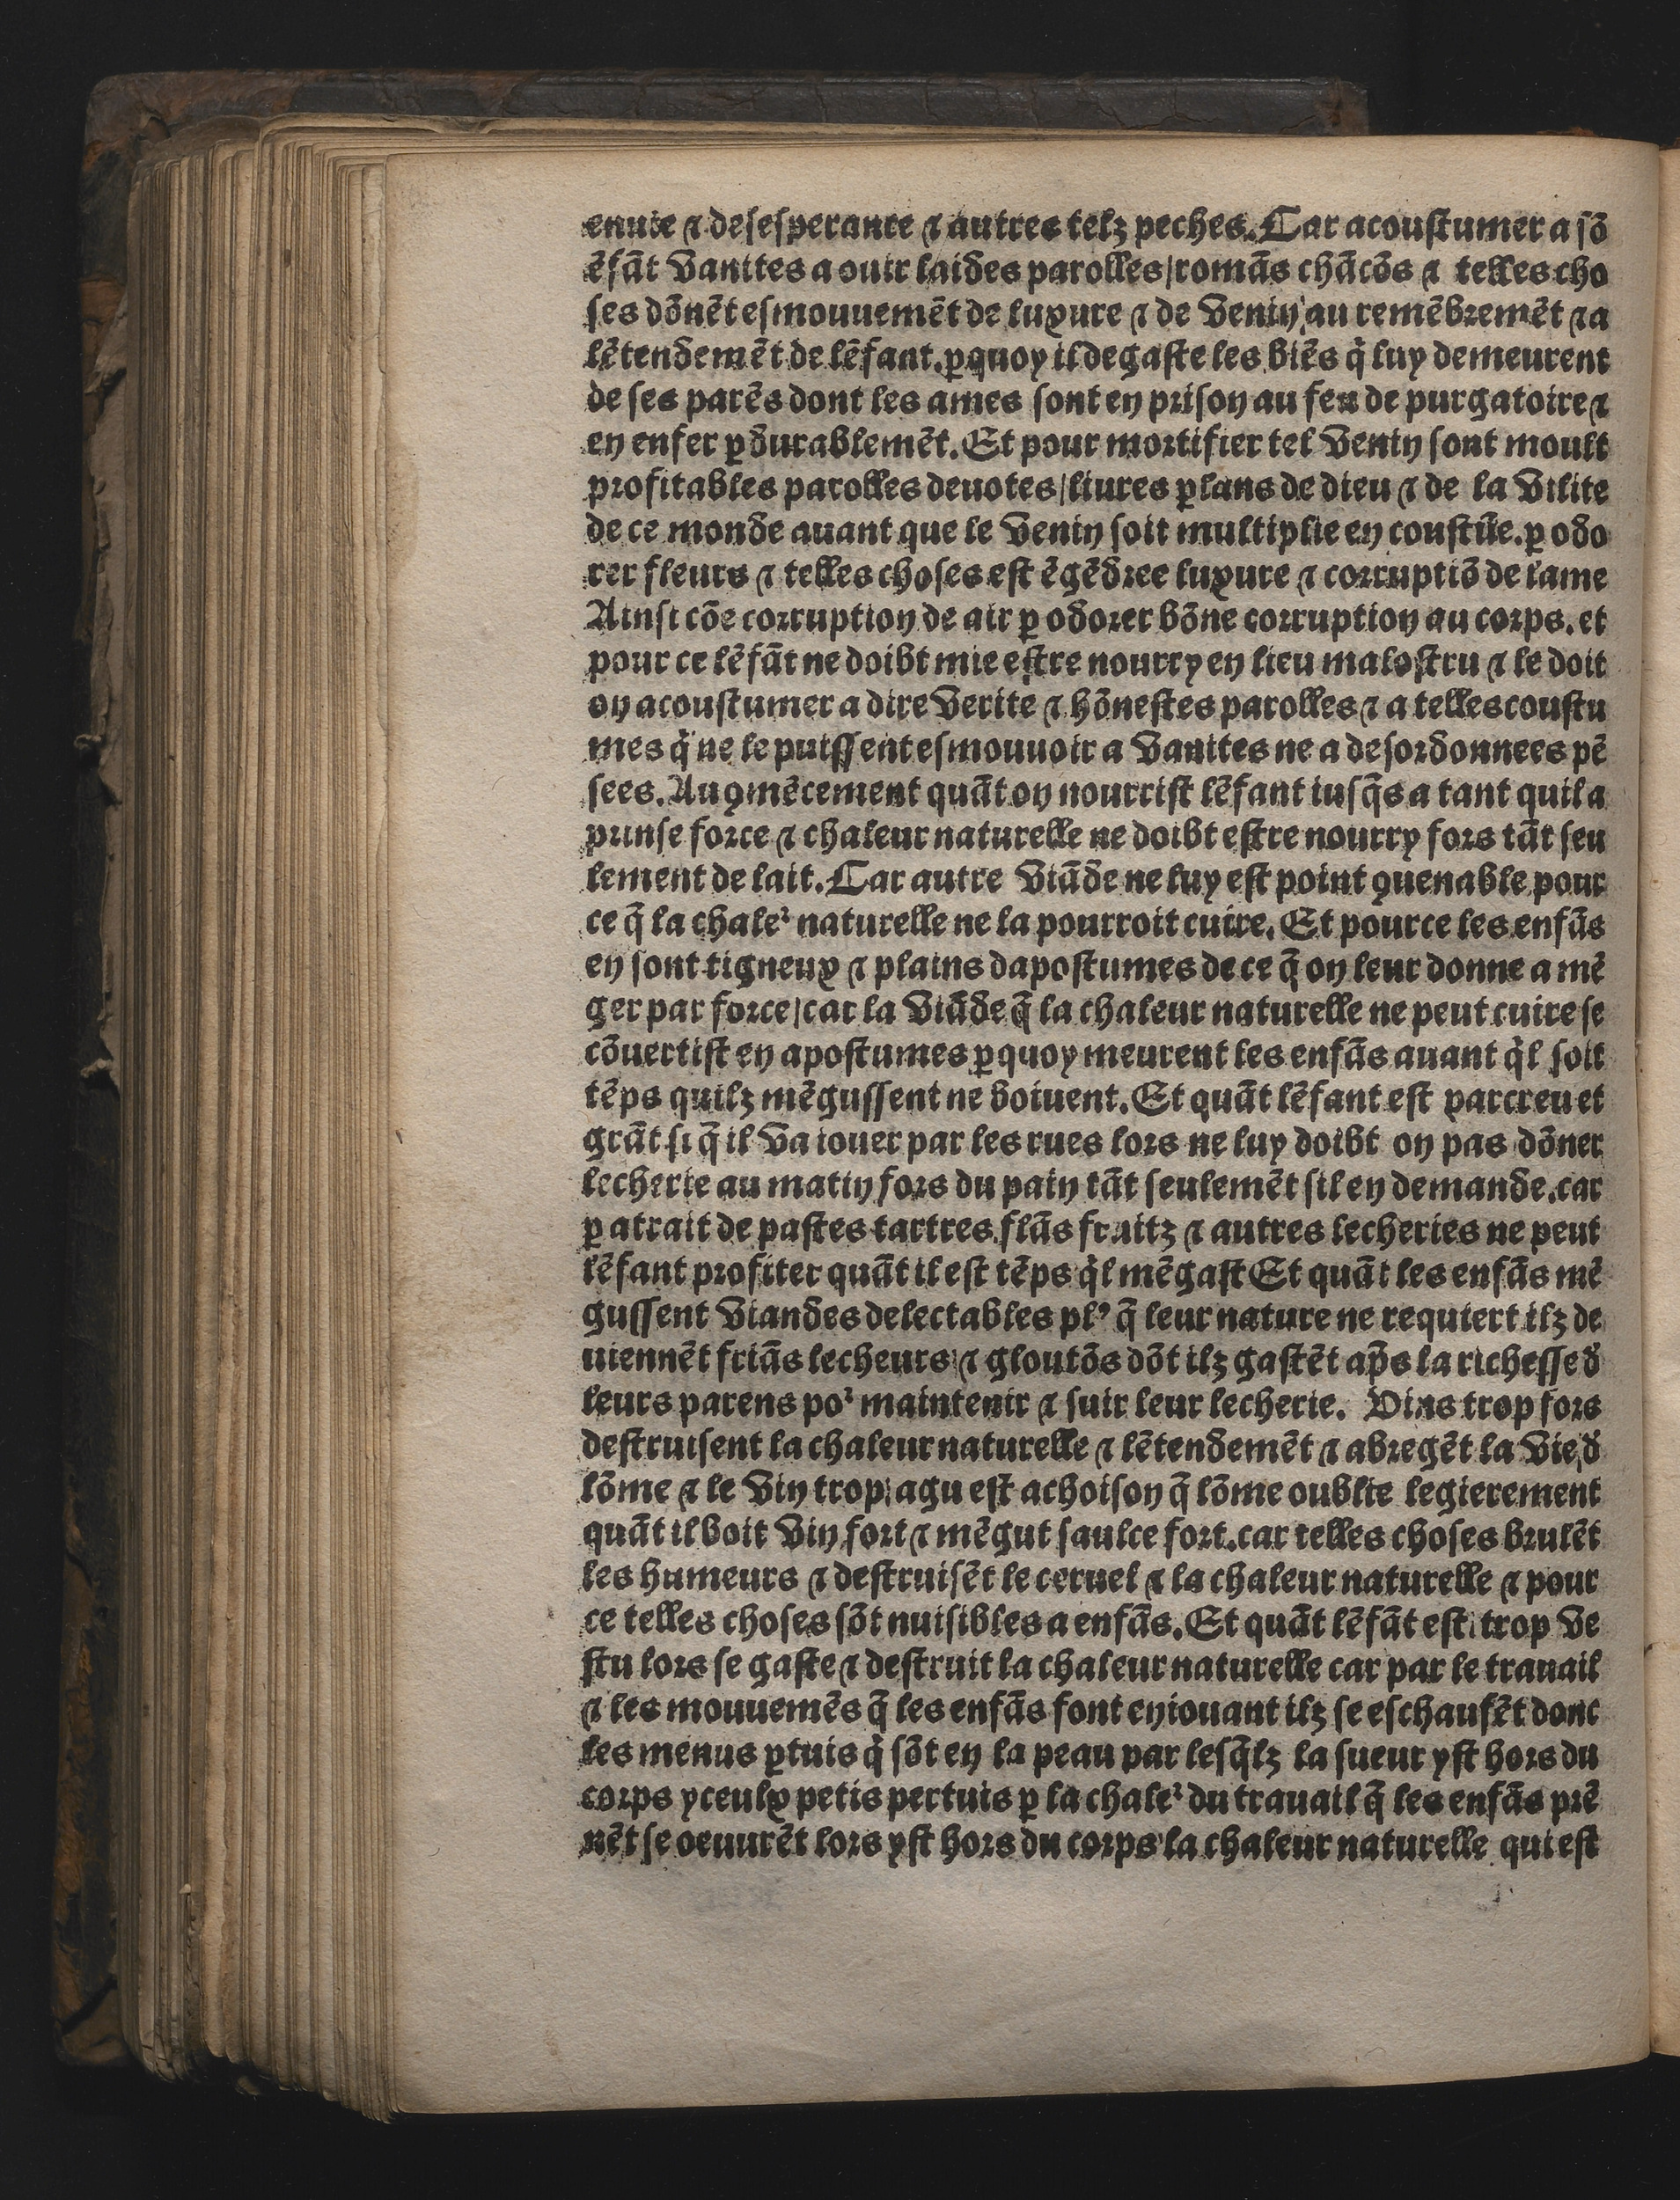 enuie ⁊ desesperance ⁊ autres telz peches. Car acoustumer a sõ
ẽfãt vanites a ouir laides parolles/romãs chãcõs ⁊ telles cho
ses dõnẽt esmouuemẽt de luxure ⁊ de venin au remẽbremẽt ⁊ a
lẽtendemẽt de lẽfant. ꝑquoy il degaste les biẽs q̃ luy demeurent
de ses parẽs dont les ames sont en prison au feu de purgatoire ⁊
en enfer ꝑdurablemẽt. Et pour mortifier tel venin sont moult
profitables parolles deuotes/liures ꝑlans de dieu ⁊ de la vilite
de ce monde auant que le venin soit multiplie en coustũe. ꝑ odo
rer fleurs ⁊ telles choses est ẽgẽdree luxure ⁊ corruptiõ de lame
Ainsi cõe corruption de air ꝑ odorer dõne corruption au corps. et
pour ce lẽfãt ne doibt mie estre nourry en lieu malostru ⁊ le doit
on acoustumer a dire verite ⁊ hõnestes parolles ⁊ a telles coustu
mes q̃ ne le puissent esmouuoir a vanites ne a desordonnees pẽ
sees. Au ꝯmẽcement quãt on nourrist lẽfant iusq̃s a tant quil a
prinse force ⁊ chaleur naturelle ne doibt estre nourry fors tãt seu
lement de lait. Car autre viãde ne luy est point ꝯuenable pour
ce q̃ la chaleᷣ naturelle ne la pourroit cuire. Et pource les enfãs
en sont tigneux ⁊ plains dapostumes de ce q̃ on leur donne a mẽ
ger par force/car la viãde q̃ la chaleur naturelle ne peut cuire se
cõuertist en apostumes ꝑquoy meurent les enfãs auant q̃l soit
tẽps quilz mẽgussent ne boiuent. Et quãt lẽfant est parcreu et
grãt si q̃ il va iouer par les rues lors ne luy doibt on pas dõner
lecherie au matin fors du pain tãt seulemẽt sil en demande. car
ꝑ atrait de pastes tartres flãs fruitz ⁊ autres lecheries ne peut
lẽfant profiter quãt il est tẽps q̃l mẽgast Et quãt les enfãs mẽ
gussent viandes delectables plꝰ q̃ leur nature ne requiert ilz de
uiennẽt friãs lecheurs ⁊ gloutõs dõt ilz gastẽt ap̃s la richesse d̃
leurs parens poᷣ maintenir ⁊ suir leur lecherie. Vins trop fors
destruisent la chaleur naturelle ⁊ lẽtendemẽt ⁊ abregẽt la vie d̃
lõme ⁊ le vin trop agu est achoison q̃ lõme oublie legierement
quãt il boit vin fort ⁊ mẽgut saulce fort. car telles choses brulẽt
les humeurs ⁊ destruisẽt le ceruel ⁊ la chaleur naturelle ⁊ pour
ce telles choses sõt nuisibles a enfãs. Et quãt lẽfãt est trop ve
stu lors se gaste ⁊ destruit la chaleur naturelle car par le trauail
⁊ les mouuemẽs q̃ les enfãs font en iouant ilz se eschaufẽt donc
les menus ꝑtuis q̃ sõt en la peau par lesq̃lz la sueur yst hors du
corps yceulx petis pertuis ꝑ la chaleᷣ du trauail q̃ les enfãs prẽ
nẽt se oeuurẽt lors yst hors du corps la chaleur naturelle qui est